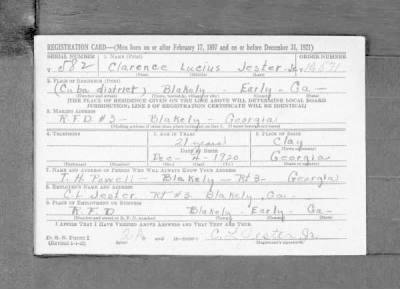 REGISTRATION CARD—(Men born on or after February 17, 1897 and on or before December 31, 1921)
SERIAL NUMBER 1. NAME (Print) ORDER NUMBER
582 Clarence Lucius Jester Jr. 10,571
(First) (Middle) (Last)
2. PLACE OF RESIDENCE (Print)
(Cuba district) Blakely - Early - Ga -
(Number and street) (Town, township, village, or city) (County) (State)
[THE PLACE OF RESIDENCE GIVEN ON THE LINE ABOVE WILL DETERMINE LOCAL BOARD
JURISDICTION; LINE 2 OF REGISTRATION CERTIFICATE WILL BE IDENTICAL]
3. MAILING ADDRESS
R.F.D #3 - Blakely - Georgia
[Mailing address if other than place indicated on line 2. If same insert word same]
4. TELEPHONE 5. AGE IN YEARS 6. PLACE OF BIRTH
21 years Clay
DATE OF BIRTH (Town or county)
Dec - 4 - 1920 Georgia
(Exchange) (Number) (Mo.) (Day) (Yr.) (State or country)
7. NAME AND ADDRESS OF PERSON WHO WILL ALWAYS KNOW YOUR ADDRESS
T. H. Powell - Blakely - Rt 3 - Georgia
8. EMPLOYER'S NAME AND ADDRESS
C. L. Jester Rt #3 Blakely, Ga.
9. PLACE OF EMPLOYMENT OR BUSINESS
R.F.D Blakely - Early - Ga -
(Number and street or R. F. D. number) (Town) (County) (State)
I AFFIRM THAT I HAVE VERIFIED ABOVE ANSWERS AND THAT THEY ARE TRUE.
D. S. S. Form 1
(Revised 1-1-42) (over) C. L. Jester Jr.
(Registrant's signature)